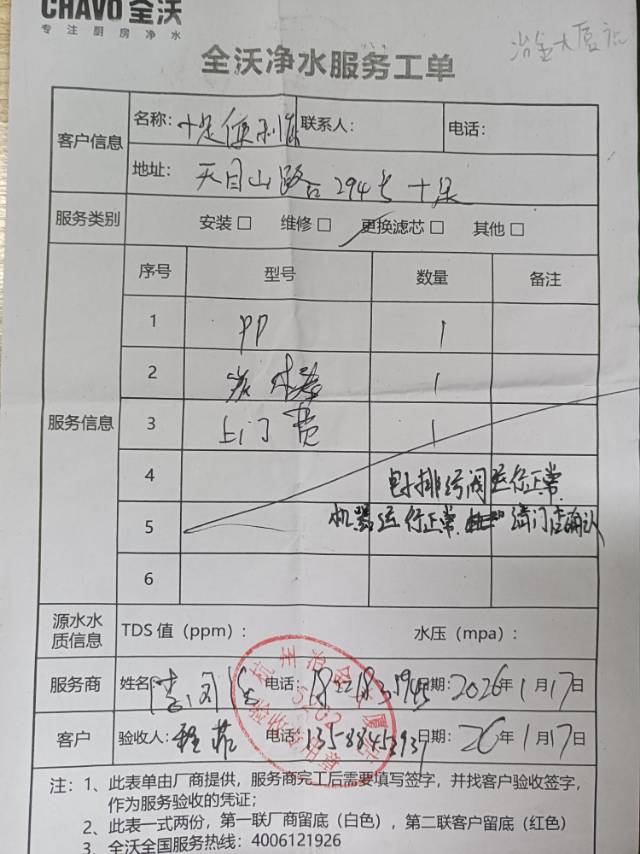 CHAVO 全沃
专注厨房净水
冶金大厦店
全沃净水服务工单
客户信息
名称：十足便利店
联系人：
电话：
地址：天目山路 294号 十足
服务类别
安装□ 维修□ 更换滤芯□ 其他□
服务信息
序号 型号 数量 备注
1 PP 1
2 炭 1
3 上门费 1
4
电排污阀运行正常
5
机器运行正常 请门店确认
6
源水水质信息
TDS 值（ppm）： 水压（mpa）：
服务商 姓名 电话： 日期：2026年1月17日
客户 验收人：程菲 电话：13588453937 日期：26年1月17日
杭州冶金大厦
5202
验收专用章
注：1、此表单由厂商提供，服务商完工后需要填写签字，并找客户验收签字，
作为服务验收的凭证；
2、此表一式两份，第一联厂商留底（白色），第二联客户留底（红色）
3、全沃全国服务热线：4006121926